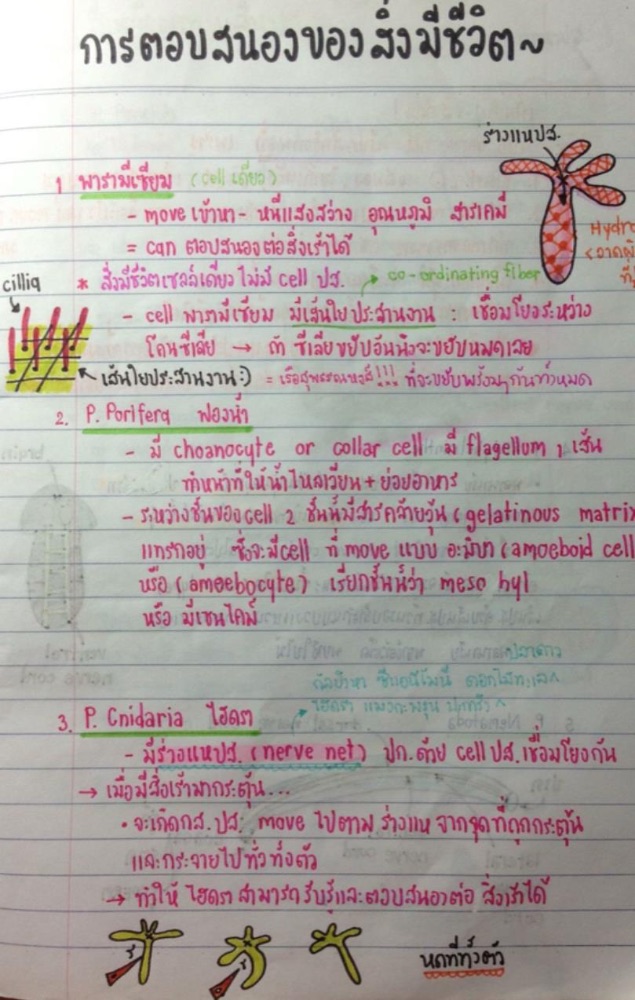 การตอบสนองของสิ่งมีชีวิต~
ร่างแหปส.
1 พารามีเซียม (cell เดียว)
- move เข้าหา- หนีแสงสว่าง อุณหภูมิ สารเคมี
= can ตอบสนองต่อสิ่งเร้าได้
Hydra
* สิ่งมีชีวิตเซลล์เดียว ไม่มี cell ปส. → co-ordinating fiber
cillia
- cell พารามีเซียม มีเส้นใยประสานงาน : เชื่อมโยงระหว่าง
โคนซีเลีย → ถ้า ซีเลียขยับอันนึงจะขยับหมดเลย
เส้นใยประสานงาน:) = เรือสุพรรณหงส์!!! ที่จะขยับพร้อมๆกันทั้งหมด
2. P. Porifera ฟองน้ำ
- มี choanocyte or collar cell มี flagellum 1 เส้น
ทำหน้าที่ให้น้ำไหลเวียน + ย่อยอาหาร
- ระหว่างชั้นของcell 2 ชั้นนี้มีสารคล้ายวุ้น (gelatinous matrix
แทรกอยู่ ซึ่งจะมีcell ที่ move แบบ อะมีบา (amoeboid cell
หรือ (amoebocyte) เรียกชั้นนี้ว่า meso hyl
หรือ มีเซนไคม์
กัลปังหา ซีแอนีโมนี ดอกไม้ทะเล
ไฮดรา แมงกะพรุน ปะการัง
3. P. Cnidaria ไฮดรา
- มีร่างแหปส. (nerve net) ปก.ด้วย cell ปส. เชื่อมโยงกัน
→ เมื่อมีสิ่งเร้ามากระตุ้น...
• จะเกิดกส.ปส. move ไปตาม ร่างแห จากจุดที่ถูกกระตุ้น
และกระจายไปทั่วทั้งตัว
→ ทำให้ ไฮดรา สามารถรับรู้และตอบสนองต่อ สิ่งเร้าได้
หดที่ทั้งตัว